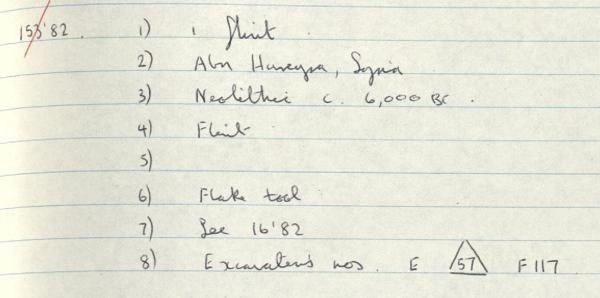 153'82. 1) 1 flint.
2) Abu Hureyra, Syria
3) Neolithic c. 6,000 BC.
4) Flint
5)
6) Flake tool
7) See 16'82
8) Excavator's nos. E 57 F117